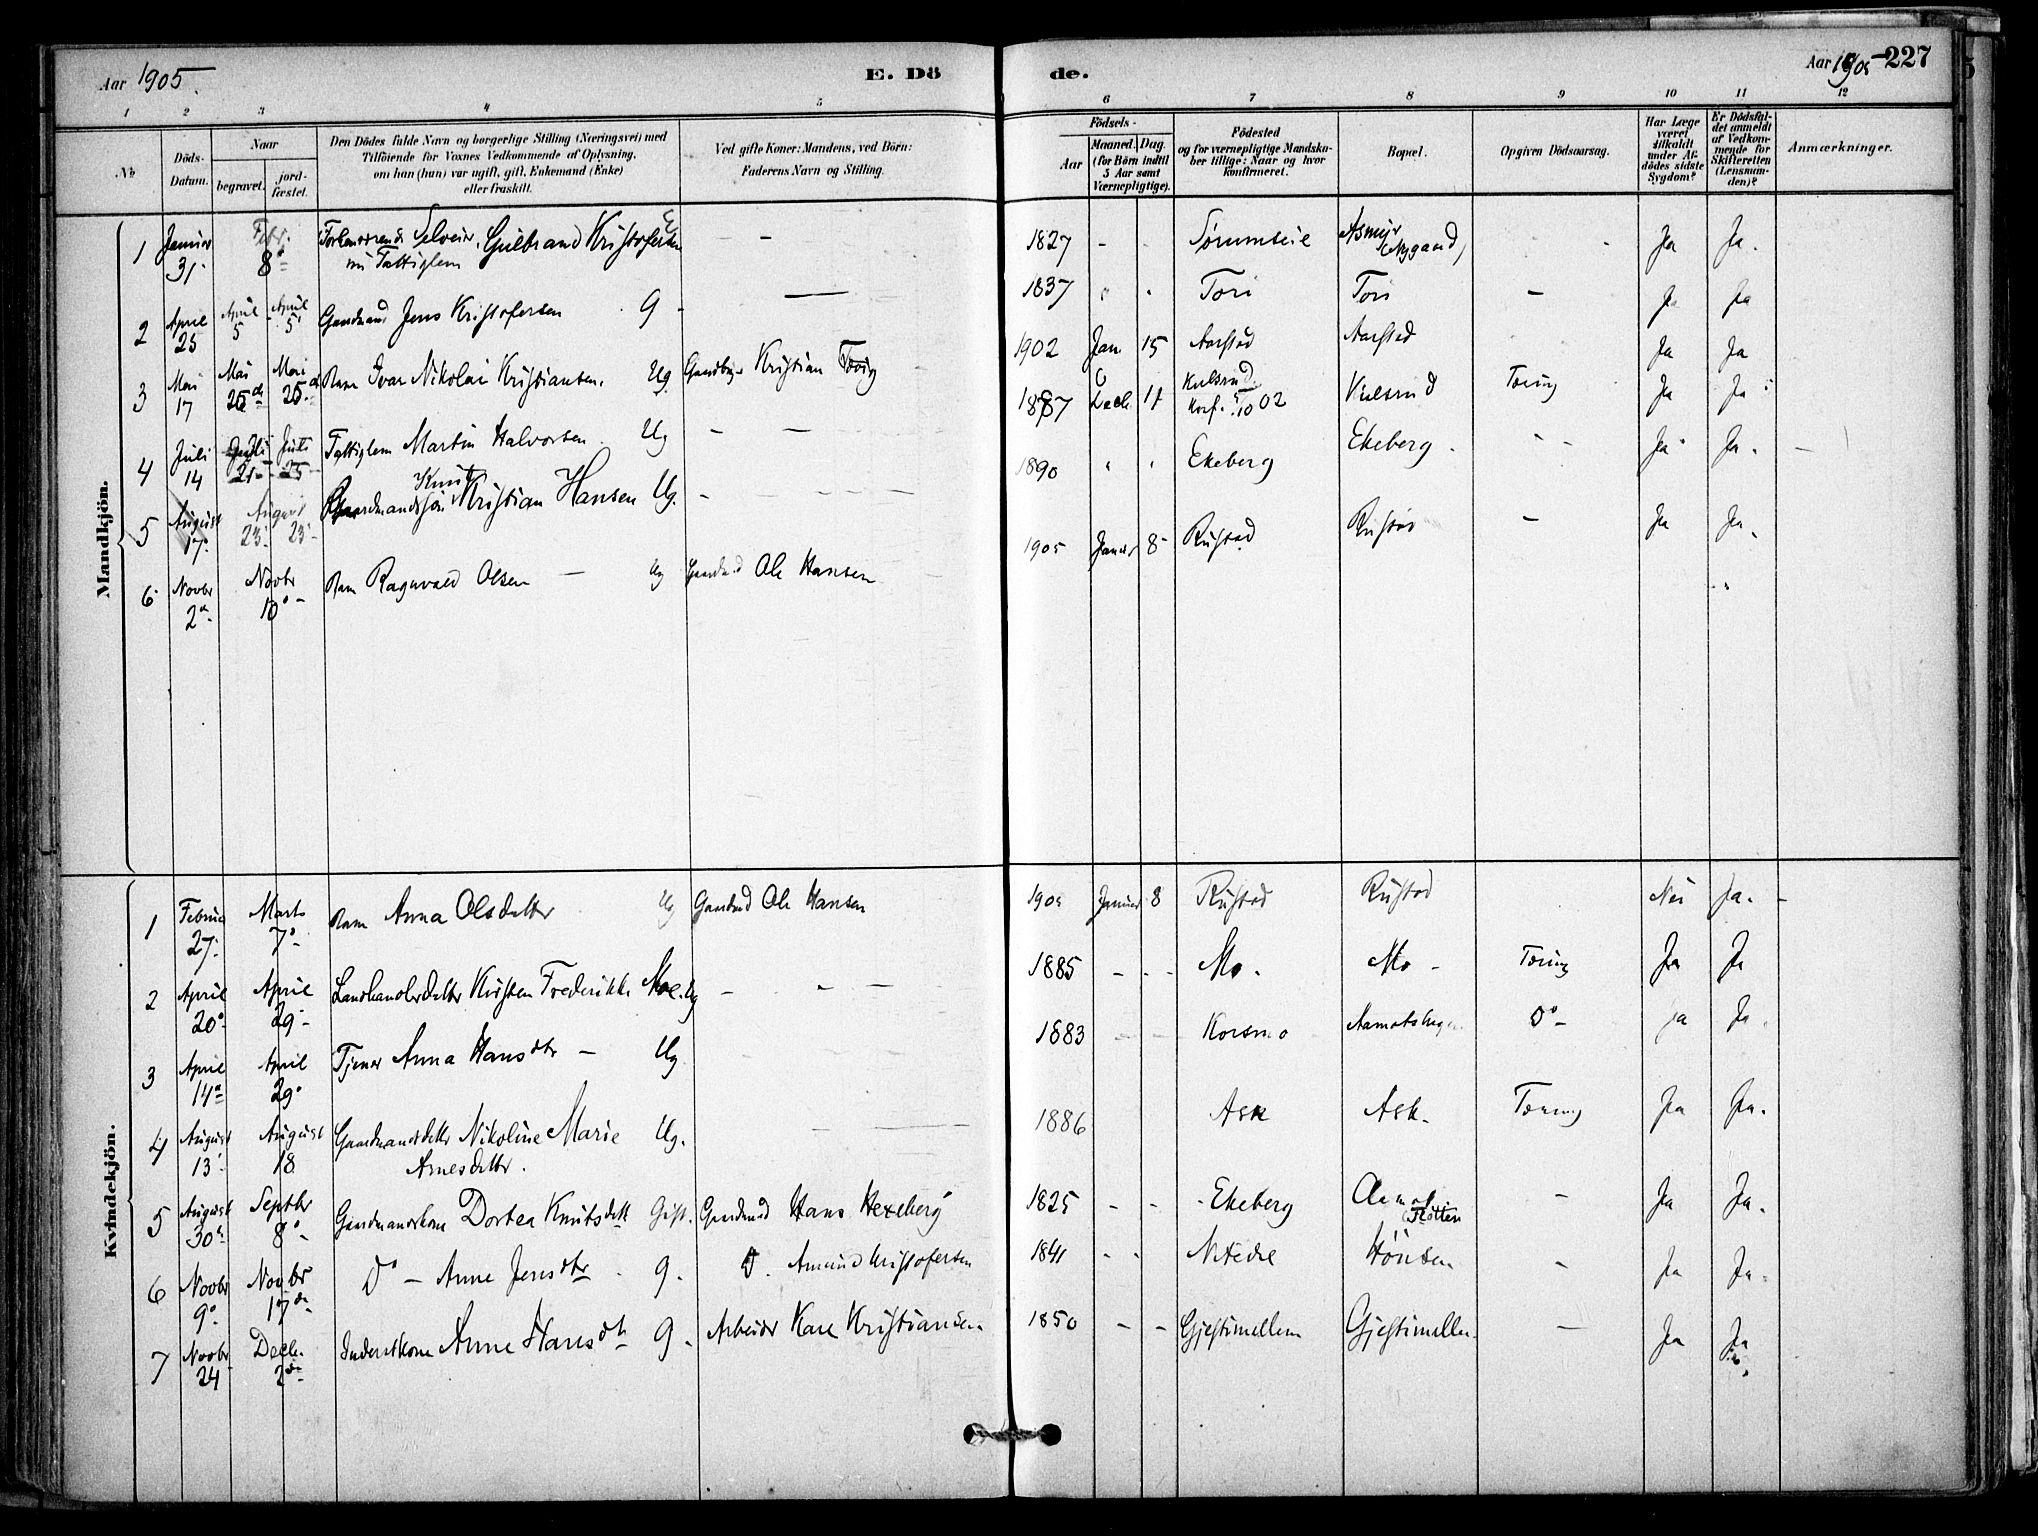 Aar 1905.
E. Dö
de.
Aar 1905
227
1 2 3 4 5 6 7 8 9 10 11 12
No
Döds-
Datum.
Naar
begravet.
jord-
fæstet.
Den Dödes fulde Navn og borgerlige Stilling (Næringsvei) med
Tilföiende for Voxnes Vedkommende af Oplysning,
om han (hun) var ugift, gift, Enkemand (Enke)
eller fraskilt.
Ved gifte Koner: Mandens, ved Börn:
Faderens Navn og Stilling.
Födsels-
Aar
Maaned. Dag.
(for Börn indtil
5 Aar samt
Værnepligtige).
Födested
og for værnepligtige Mandska-
ber tillige: Naar og hvor
konfirmeret.
Bopæl.
Opgiven Dödsaarsag.
Har Læge
været
tilkaldt
under Af-
dödes sidste
Sygdom?
Er Dödsfal-
det anmeldt
af Vedkom-
mende for
Skifteretten
(Lensman-
den)?
Anmærkninger.
Mandkjön.
1 Januar 31. Febr. 8. Forhenværende Selveier, Gulbrand Kristofersen E nu Fattiglem - - 1827 - - Sørumseie Ja Ja.
2 April 25 April 5 April 5 Gaardmand Jens Kristofersen G - 1837 Tori Tori - Ja Ja
3 Mai 17 Mai 25 Mai 25 Barn Ivar Nikolai Kristiansen. Ug. Kristian 1902 Jan 15 Aarstad Aarstad Ja Ja
4 Juli 14 Juli 25 Fattiglem Martin Halvorsen Ug - - 1887 Decb 17 Kulsrud Konf. 5/10 02 Kulsrud Tæring Ja Ja
5 August 17. August 23. 23. Gaardmandssøn Knut Kristian Hansen Ug. - 1890 Ekeberg Ekeberg Ja Ja.
6 Novbr 2 Novbr 10 Barn Ragnvald Olsen - Ug Gaardmd Ole Hansen 1905 Januar 8 Rustad Rustad - Ja Ja.
Kvindekjön.
1 Februar 27. Marts 7. Barn Anna Olsdatter Ug Gaardmd Ole Hansen 1905 Januar 8 Rustad Rustad Nei Ja. -
2 April 20 April 29 Landhandlerdatter Kirsten Frederikke Moe. Ug - - 1885 - - Mo. Mo - Tæring Ja Ja
3 April 14 April 29 Tjener Anna Hansdtr - Ug. 1883 Korsmo Do - Ja Ja.
4 August 13. August 18 Gaardmandsdatter Nikoline Marie Arnesdatter. Ug. 1886 Ask Ask. Tæring Ja Ja.
5 August 30 Septbr 8 Gaardmandskone Dortea Knutsdatt Gift. Gaardmd Hans Hexeberg 1825 - - Ekeberg - Ja Ja.
6 Novbr 9. Novbr 17 Do - Anne Jensdtr. G. D. Amund Kristofersen 1841 Hønsen - Ja Ja.
7 Novbr 24 Decb. 2 Inderstkone Anne Hansdt G. Arbeider Karl Kristiansen 1850 - - Gjestimellem Gjestimellem - Ja Ja